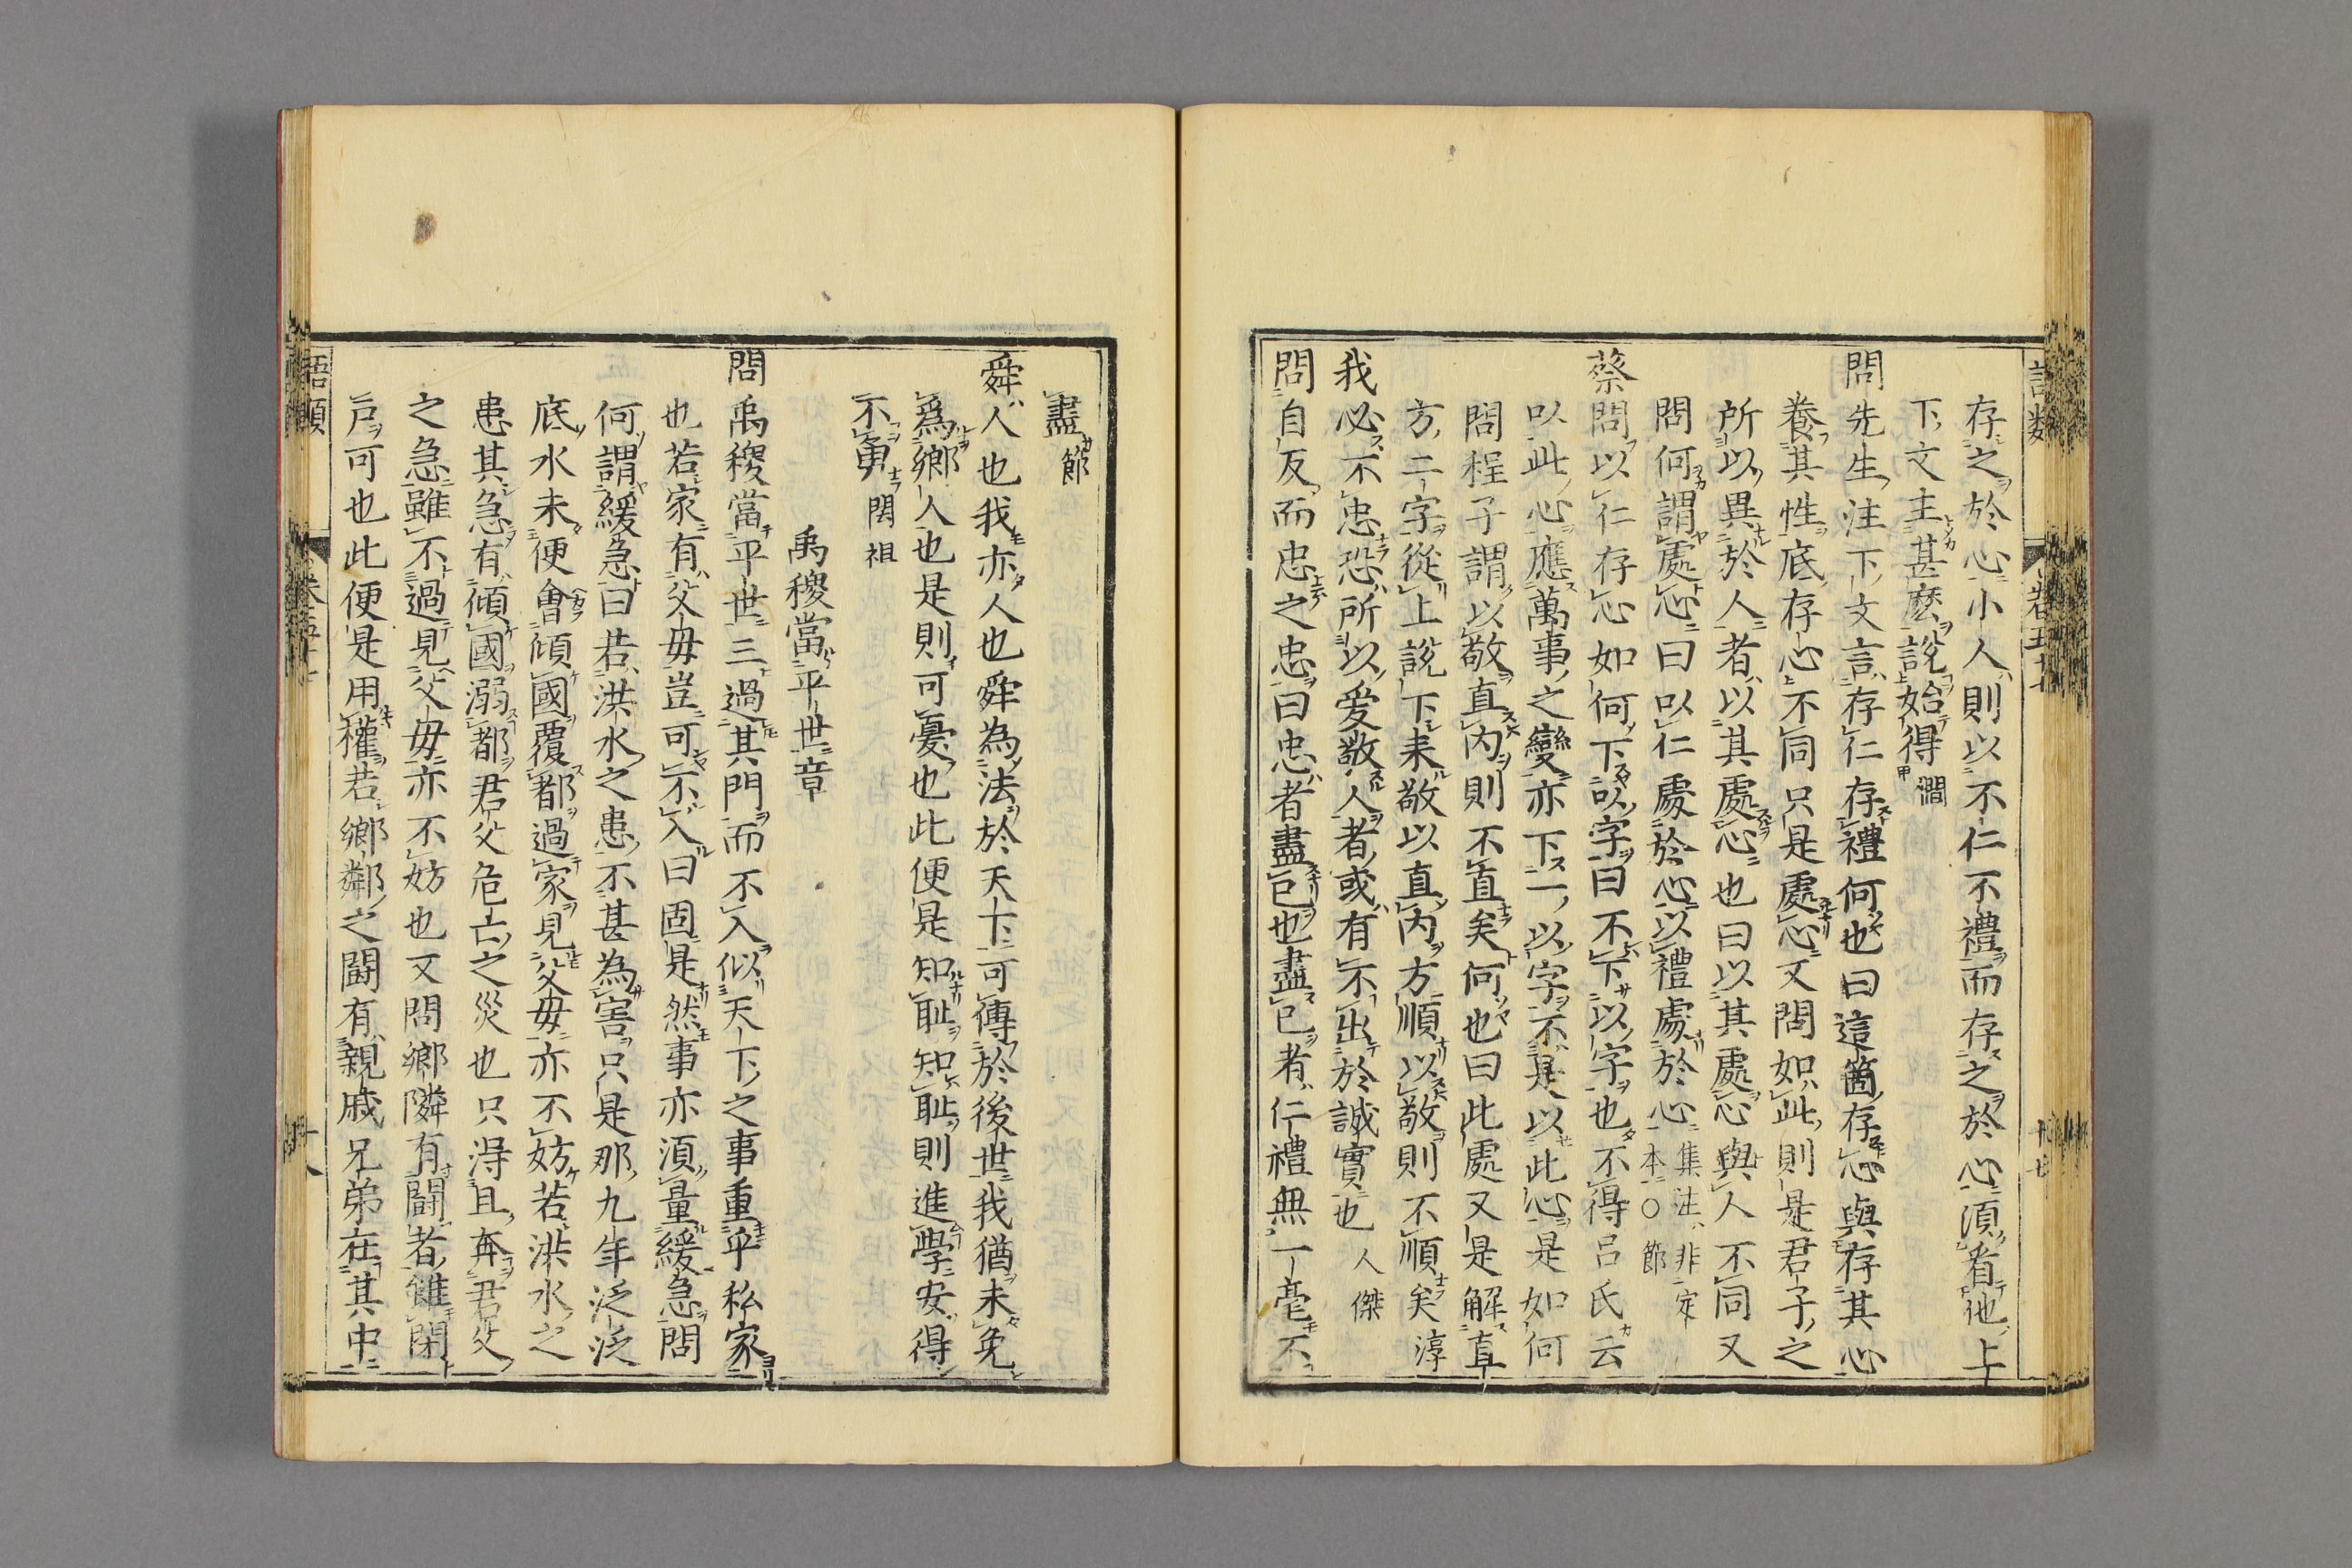 存之於心小人則以不仁不禮而存之於心須看他上
下文主甚麼說始得 㽦 澗
問先生注下文言存仁存禮何也曰這箇存心與存其心
養其性底存心不同只是處心又問如此則是君子之
所以異於人者以其處心也曰以其處心與人不同又
問何謂處心曰以仁處於心以禮處於心 集注非定本○節
蔡問以仁存心如何下以字曰不下以字也不得呂氏云
以此心應萬事之變亦下一以字不是以此心是如何
問程子謂以敬直內則不直矣何也曰此處又是解直
方二字從上說下來敬以直內方順以敬則不順矣 淳
我必不忠恐所以愛敬人者或有不出於誠實也 人傑
問自反而忠之忠曰忠者盡己也盡己者仁禮無一毫不
盡 節
舜人也我亦人也舜為法於天下可傳於後世我猶未免
爲鄉人也是則可憂也此便是知恥知恥則進學安得
不勇 閎祖
禹稷當平世章
問禹稷當平世三過其門而不入似天下之事重乎私家
也若家有父母豈可不入曰固是然事亦須量緩急問
何謂緩急曰若洪水之患不甚為害只是那九年泛泛
底水未便會傾國覆都過家見父母亦不妨若洪水之
患其急有傾國溺都君父危亡之災也只得且奔君父
之急雖不過見父母亦不妨也又問鄉隣有鬪者雖閉
戸可也此便是用權若鄉鄰之鬪有親戚兄弟在其中